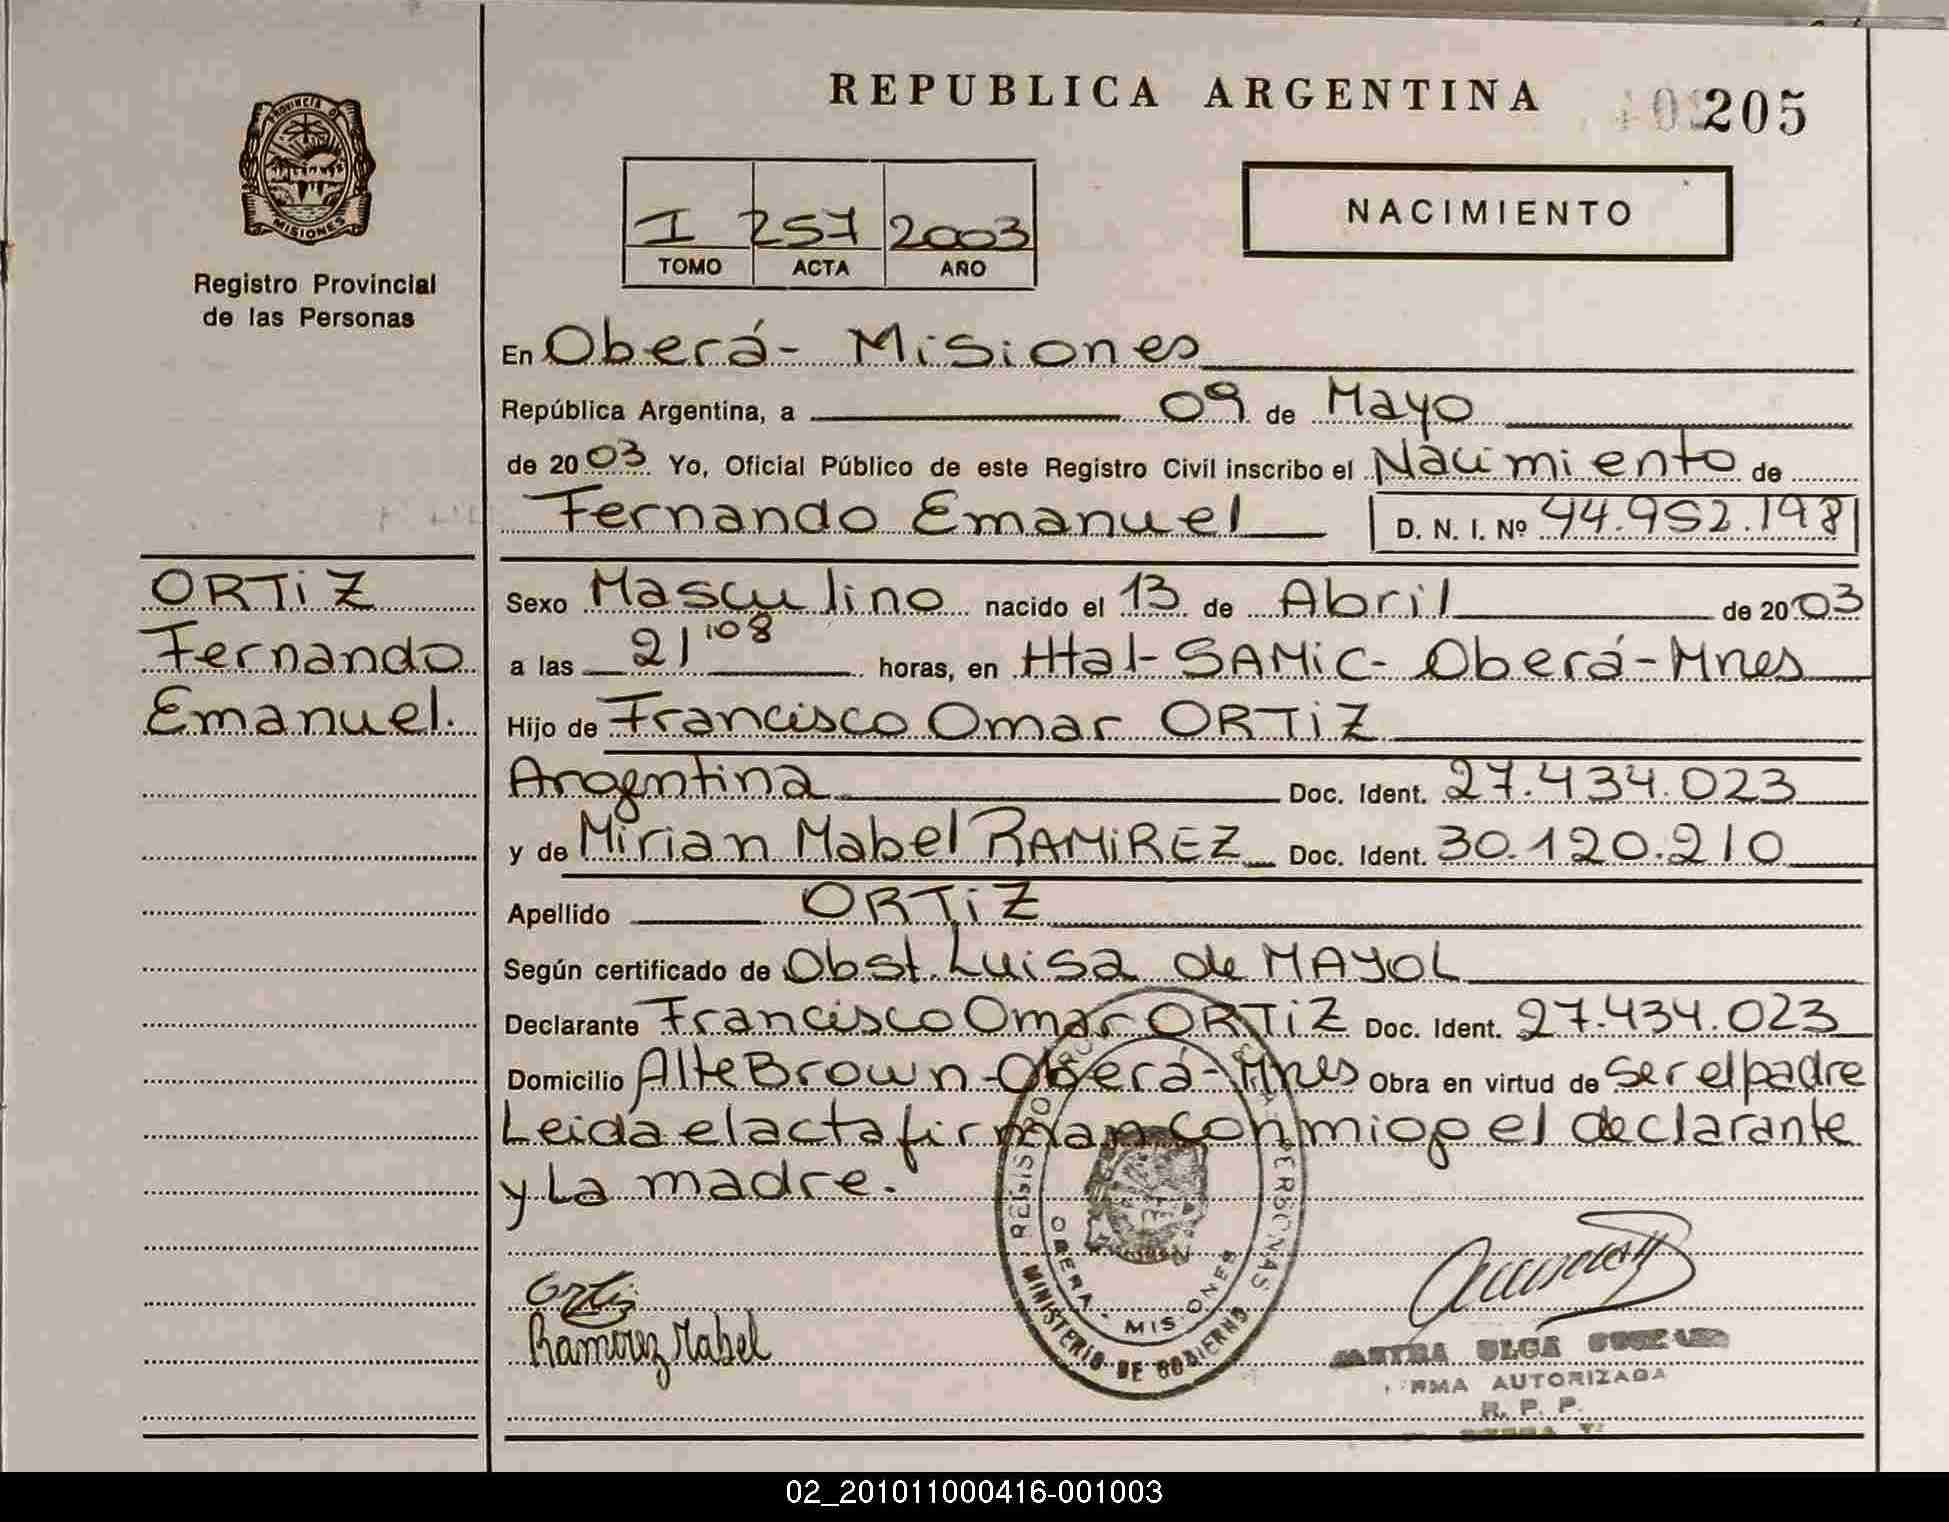 REPUBLICA ARGENTINA
205
PROVINCIA D
MISIONES
Registro Provincial
de las Personas
I 257 2003
TOMO ACTA AÑO
NACIMIENTO
En Oberá- Misiones
República Argentina, a 09 de Mayo
de 2003 Yo, Oficial Público de este Registro Civil inscribo el Nacimiento de
Fernando Emanuel D. N. I. Nº 44.952.198
ORTIZ
Fernando
Emanuel.
Sexo Masculino nacido el 13 de Abril de 2003
a las 21'08 horas, en Htal-SAMIC- Oberá-Mnes
Hijo de Francisco Omar ORTIZ
Argentina Doc. Ident. 27.434.023
y de Mirian Mabel RAMIREZ Doc. Ident. 30.120.210
Apellido ORTIZ
Según certificado de Obst. Luisa de MAYOL
Declarante Francisco Omar ORTIZ Doc. Ident. 27.434.023
Domicilio Alte Brown-Oberá-Mnes Obra en virtud de ser el padre
Leida el acta firman conmigo el declarante
y La madre.
REGISTRO PERSONAS
OBERA - MISIONES
MINISTERIO DE GOBIERNO
Ortiz
Ramirez Mabel
OLGA
RMA AUTORIZADA
R. P. P.
02_201011000416-001003